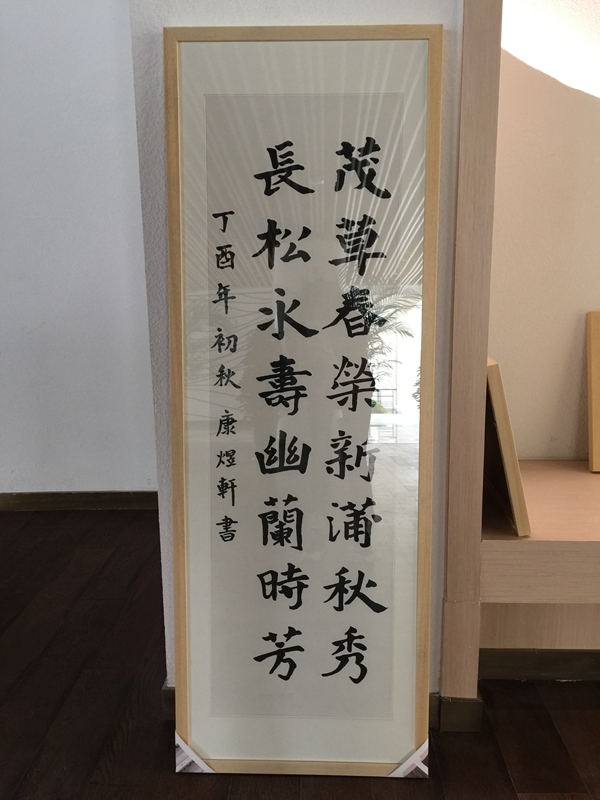 茂草春榮新蒲秋秀
長松永壽幽蘭時芳
丁酉年初秋康煜軒書